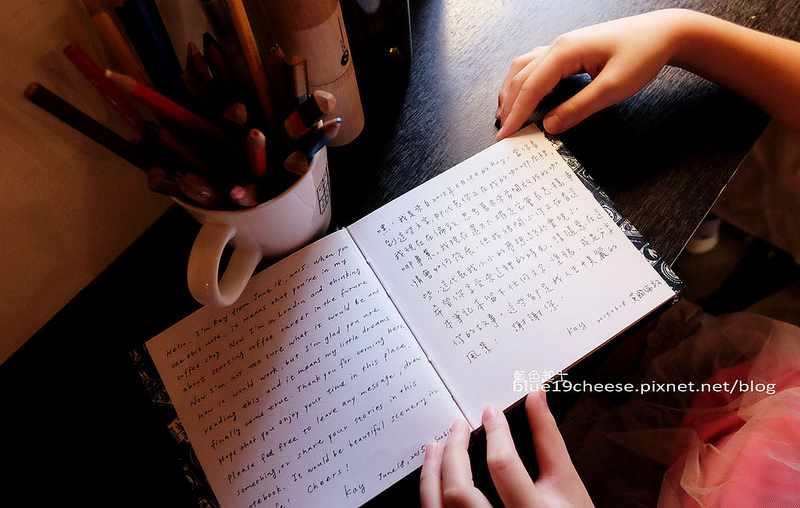 Hello, I'm Kay from June 18, 2015. when you
see this note, it means that you're in my
coffee shop. Now I'm in London and thinking
about starting coffee career in the future.
Now I'm not too sure what it would be and
how it would work, but I'm glad you are
reading this and it means my little dreams
finally come true. Thank you for coming here
Hope that you enjoy your time in this place,
please feel free to leave any message, draw
something, or share your stories in this
notebook. It would be beautiful scenery in
life! Cheers!
Kay June 18, 2015,
嘿,我是來自2015年6月18日的Kay,當你看
到這些文字,即代表你正在我的咖啡店裡,
我現在在倫敦,思考著未來開啟我的咖
啡事業,我現在還不太確定它會長怎樣,事
情會如何發展,但我很開心你正在看這
些,這代表我小小的夢想終於實現了,
希望你享受在這裡的時光,請隨意在這
本筆記本留下任何文字、塗鴉,或是分享
你的故事,這些都是我人生中美麗的
風景! 謝謝你
Kay 2015.06.18 英國倫敦
藍色起士
blue19cheese.pixnet.net/blog